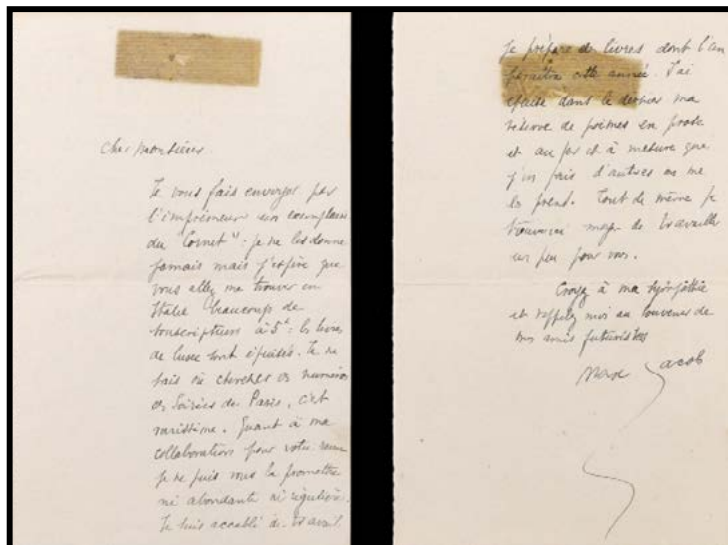 Cher Monsieur.
Je vous fais envoyer par
l'imprimeur un exemplaire
du "Cornet": je ne les donne
jamais mais j'espère que
vous allez me trouver en
Italie beaucoup de
souscripteurs à 5f: les livres
de luxe sont épuisés. Je ne
sais où chercher ces numéros
des Soirées de Paris, c'est
rarissime. Quant à ma
collaboration pour votre revue
je ne puis vous la promettre
ni abondante ni régulière.
Je suis accablé de travail.
Je prépare de livres dont l'un
paraîtra cette année. J'ai
dans le dernier ma
réserve de poèmes en prose
et au fur et à mesure que
j'en fais d'autres on me
les prend. Tout de même je
trouverai moyen de travailler
un peu pour vous.
Croyez à ma sympathie
et rappelez moi au souvenir de
nos amis futuristes
Max Jacob